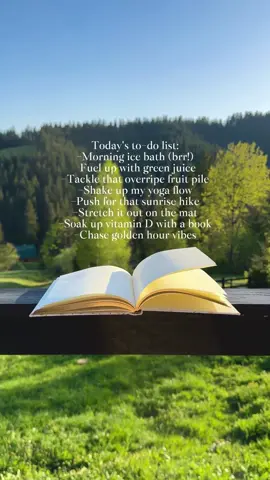 Today's to-do list:
-Morning ice bath (brr!)
-Fuel up with green juice
-Tackle that overripe fruit pile
-Shake up my yoga flow
-Push for that sunrise hike
-Stretch it out on the mat
-Soak up vitamin D with a book
-Chase golden hour vibes